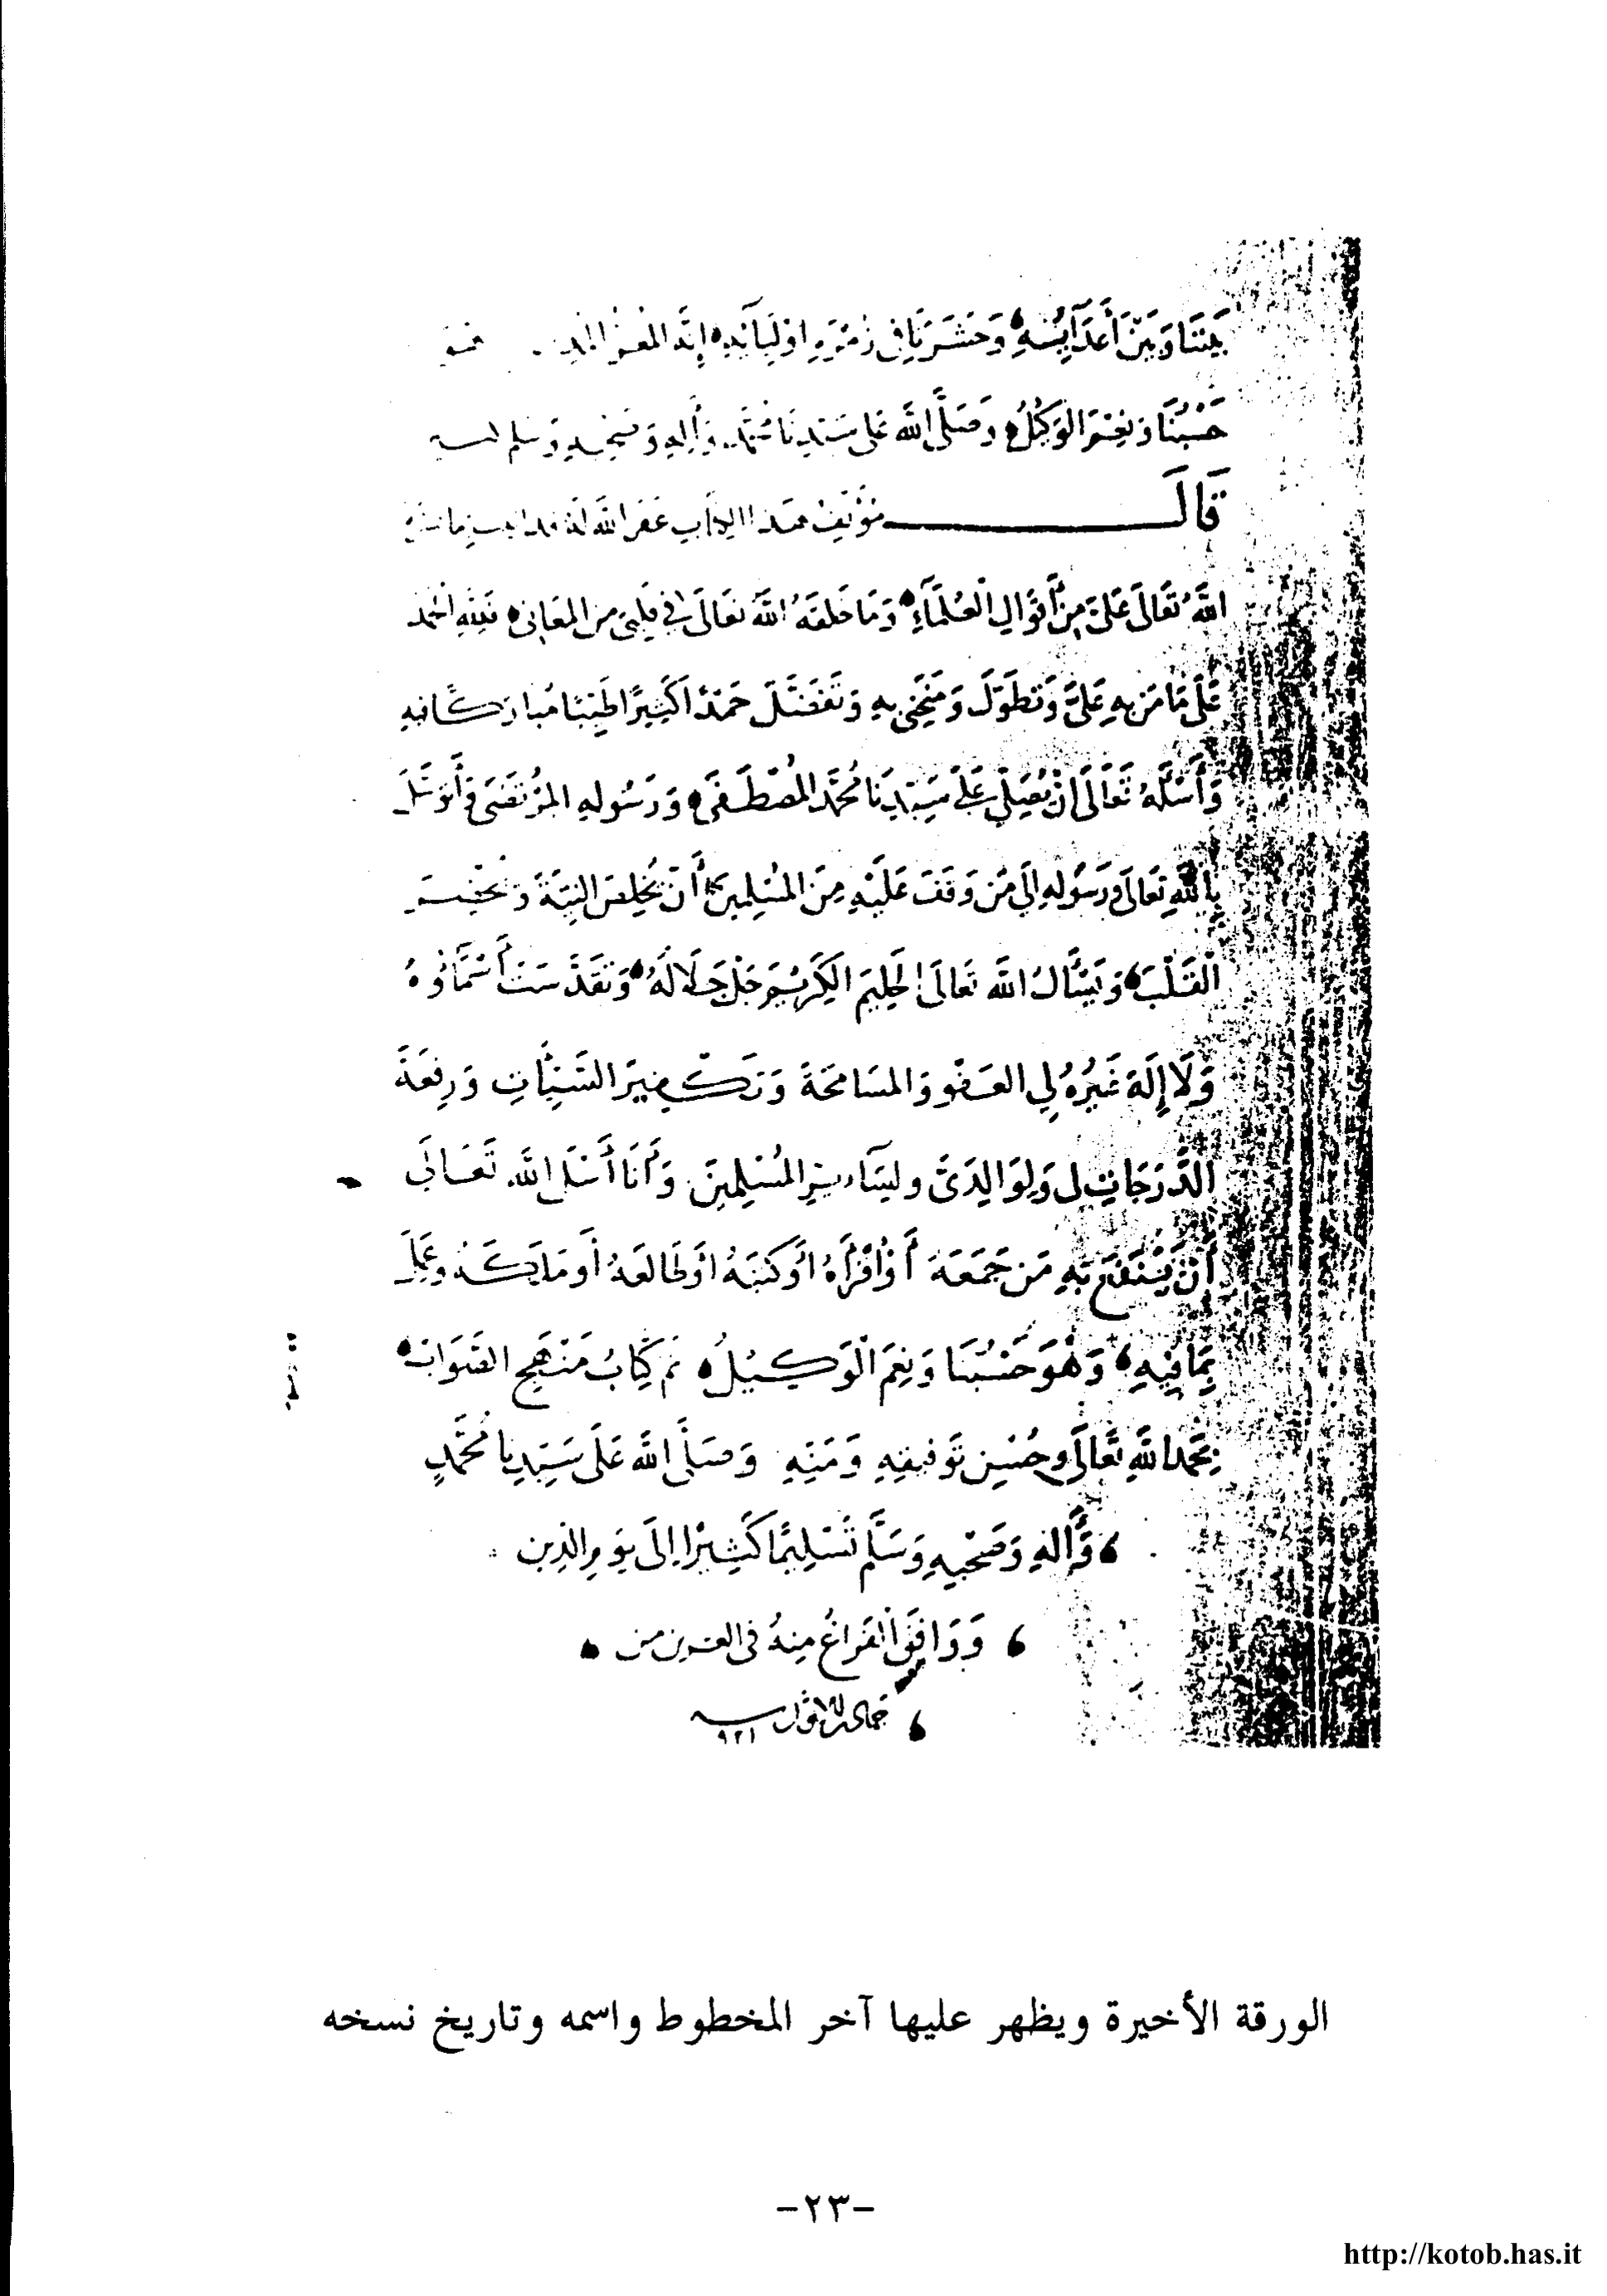 بَيْنَنَا وَبَيْنَ أَعْدَآئِهِ وَحَشَرَنَا فِي زُمْرَةِ اوْلِيَآئِهِ إِنَّهُ
حَسْبُنَا وَنِعْمَ الْوَكِيلُ وَصَلَّى اللّٰه عَلَى سَيِّدِنَا مُحَمَّد وَآلِهِ وَصَحْبِهِ وَسَلَّم
قَالَ مُؤَلِّفُ هٰذَا الكِتَابِ غَفَرَ اللّٰه لَهُ
اللّٰهُ تَعَالَى عَلَيَّ مِنْ أَقْوَالِ الْعُلَمَآءِ وَمَا خَلَقَهُ اللّٰهُ تَعَالَى فِي قَلْبِي مِنَ المَعَانِي فَلِلّٰهِ الْحَمْد
عَلَى مَا مَنَّ بِهِ عَلَيَّ وَتَطَوَّلَ وَمَنَحَنِي بِهِ وَتَفَضَّلَ حَمْدًا كَثِيرًا طَيِّبًا مُبَارَكًا فِيهِ
وَأَسْئَلُهُ تَعَالَى انْ يُصَلِّيَ عَلَى سَيِّدِنَا مُحَمَّد المُصْطَفَى وَرَسُولِهِ المُرْتَضَى وَأَتَوَسَّلَ
بِاللّٰهِ تَعَالَى وَرَسُولِهِ إِلَى مَنْ وَقَفَ عَلَيْهِ مِنَ المُسْلِمِينَ أَنْ يُخْلِصَ النِّيَّةَ وَ
الْقَلْبَ وَيَسْأَلُ اللّٰه تَعَالَى الحَلِيمَ الكَرِيمَ جَلَّ جَلَالُهُ وَتَقَدَّسَتْ أَسْمَاؤُهُ
وَلَا إِلٰهَ غَيْرُهُ لِي العَفْو وَالمسَامَحَةَ وَتَكْفِيرَ السَّيِّئَاتِ وَرِفْعَةَ
الدَّرَجَاتِ لِي وَلِوَالِدَيَّ وَلِسَآئِرِ المُسْلِمِينَ وَأَنَا أَسْئَلُ اللّٰه تَعَالَى
أَنْ يَنْفَعَ بِهِ مَنْ جَمَعَهُ أَوْ قَرَأَهُ اوْ كَتَبَهُ اوْ طَالَعَهُ أَو مَلَكَهُ وَعَمِلَ
بِمَا فِيهِ وَهُوَ حَسْبُنَا وَنِعْمَ الْوَكِيلُ تم كِتَابُ مَنْهَجِ الصَّوَابِ
بِحَمْدِ اللّٰهِ تَعَالَى وَحُسْنِ تَوْفِيقِهِ وَمَنِّهِ وَصَلَّى اللّٰه عَلَى سَيِّدِنَا مُحَمَّدٍ
وَآلِهِ وَصَحْبِهِ وَسَلَّم تَسْلِيمًا كَثِيرًا إِلَى يَوْمِ الدِّين
وَوَافَقَ الْفَرَاغُ مِنْهُ فِي العشرين من
جمادى الاول سنة ٩٢١
الورقة الأخيرة ويظهر عليها آخر المخطوط واسمه وتاريخ نسخه
-٢٣-
http://kotob.has.it